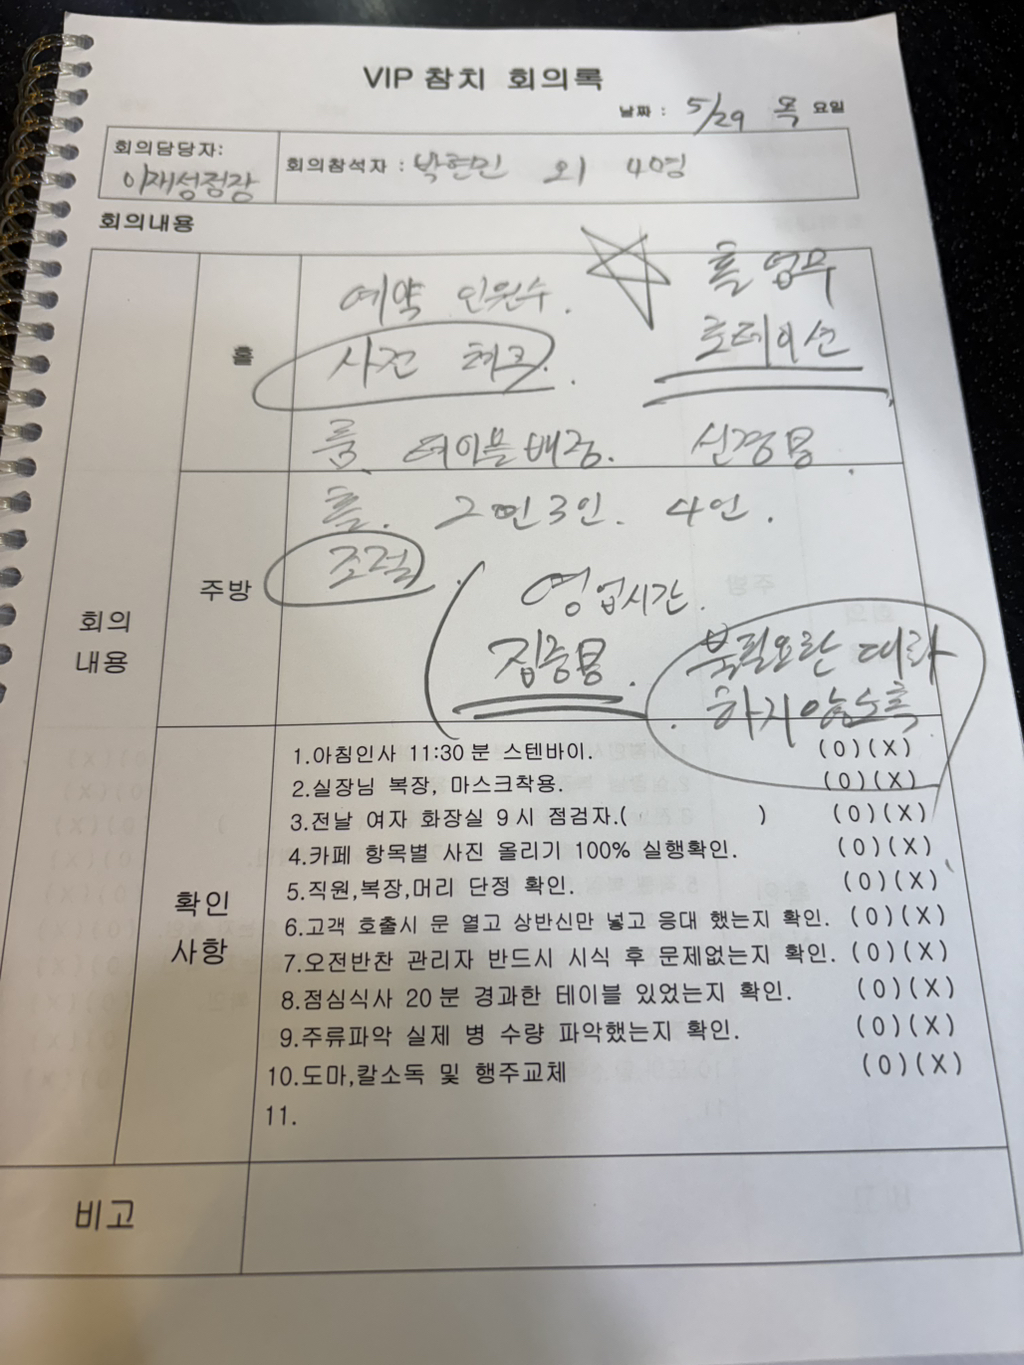 VIP 참치 회의록
날짜 : 5/29 목 요일
회의담당자:
이재성점장
회의참석자 : 박현민 외 4명
회의내용
홀
예약 인원수.
사전 체크.
홀 업무
로테이션
룸. 테이블배정. 신경씀.
주방
홀. 2인 3인. 4인.
조절
영업시간.
집중요.
불필요한 대화
하지않도록
회의
내용
확인
사항
1.아침인사 11:30분 스텐바이. (O)(X)
2.실장님 복장, 마스크착용. (O)(X)
3.전날 여자 화장실 9시 점검자.( ) (O)(X)
4.카페 항목별 사진 올리기 100% 실행확인. (O)(X)
5.직원,복장,머리 단정 확인. (O)(X)
6.고객 호출시 문 열고 상반신만 넣고 응대 했는지 확인. (O)(X)
7.오전반찬 관리자 반드시 시식 후 문제없는지 확인. (O)(X)
8.점심식사 20분 경과한 테이블 있었는지 확인. (O)(X)
9.주류파악 실제 병 수량 파악했는지 확인. (O)(X)
10.도마,칼소독 및 행주교체 (O)(X)
11.
비고